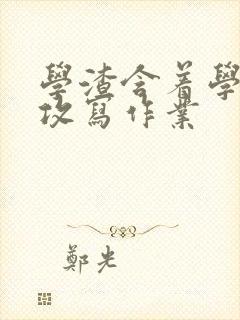 學渣含着學
攻寫作業
鄭光